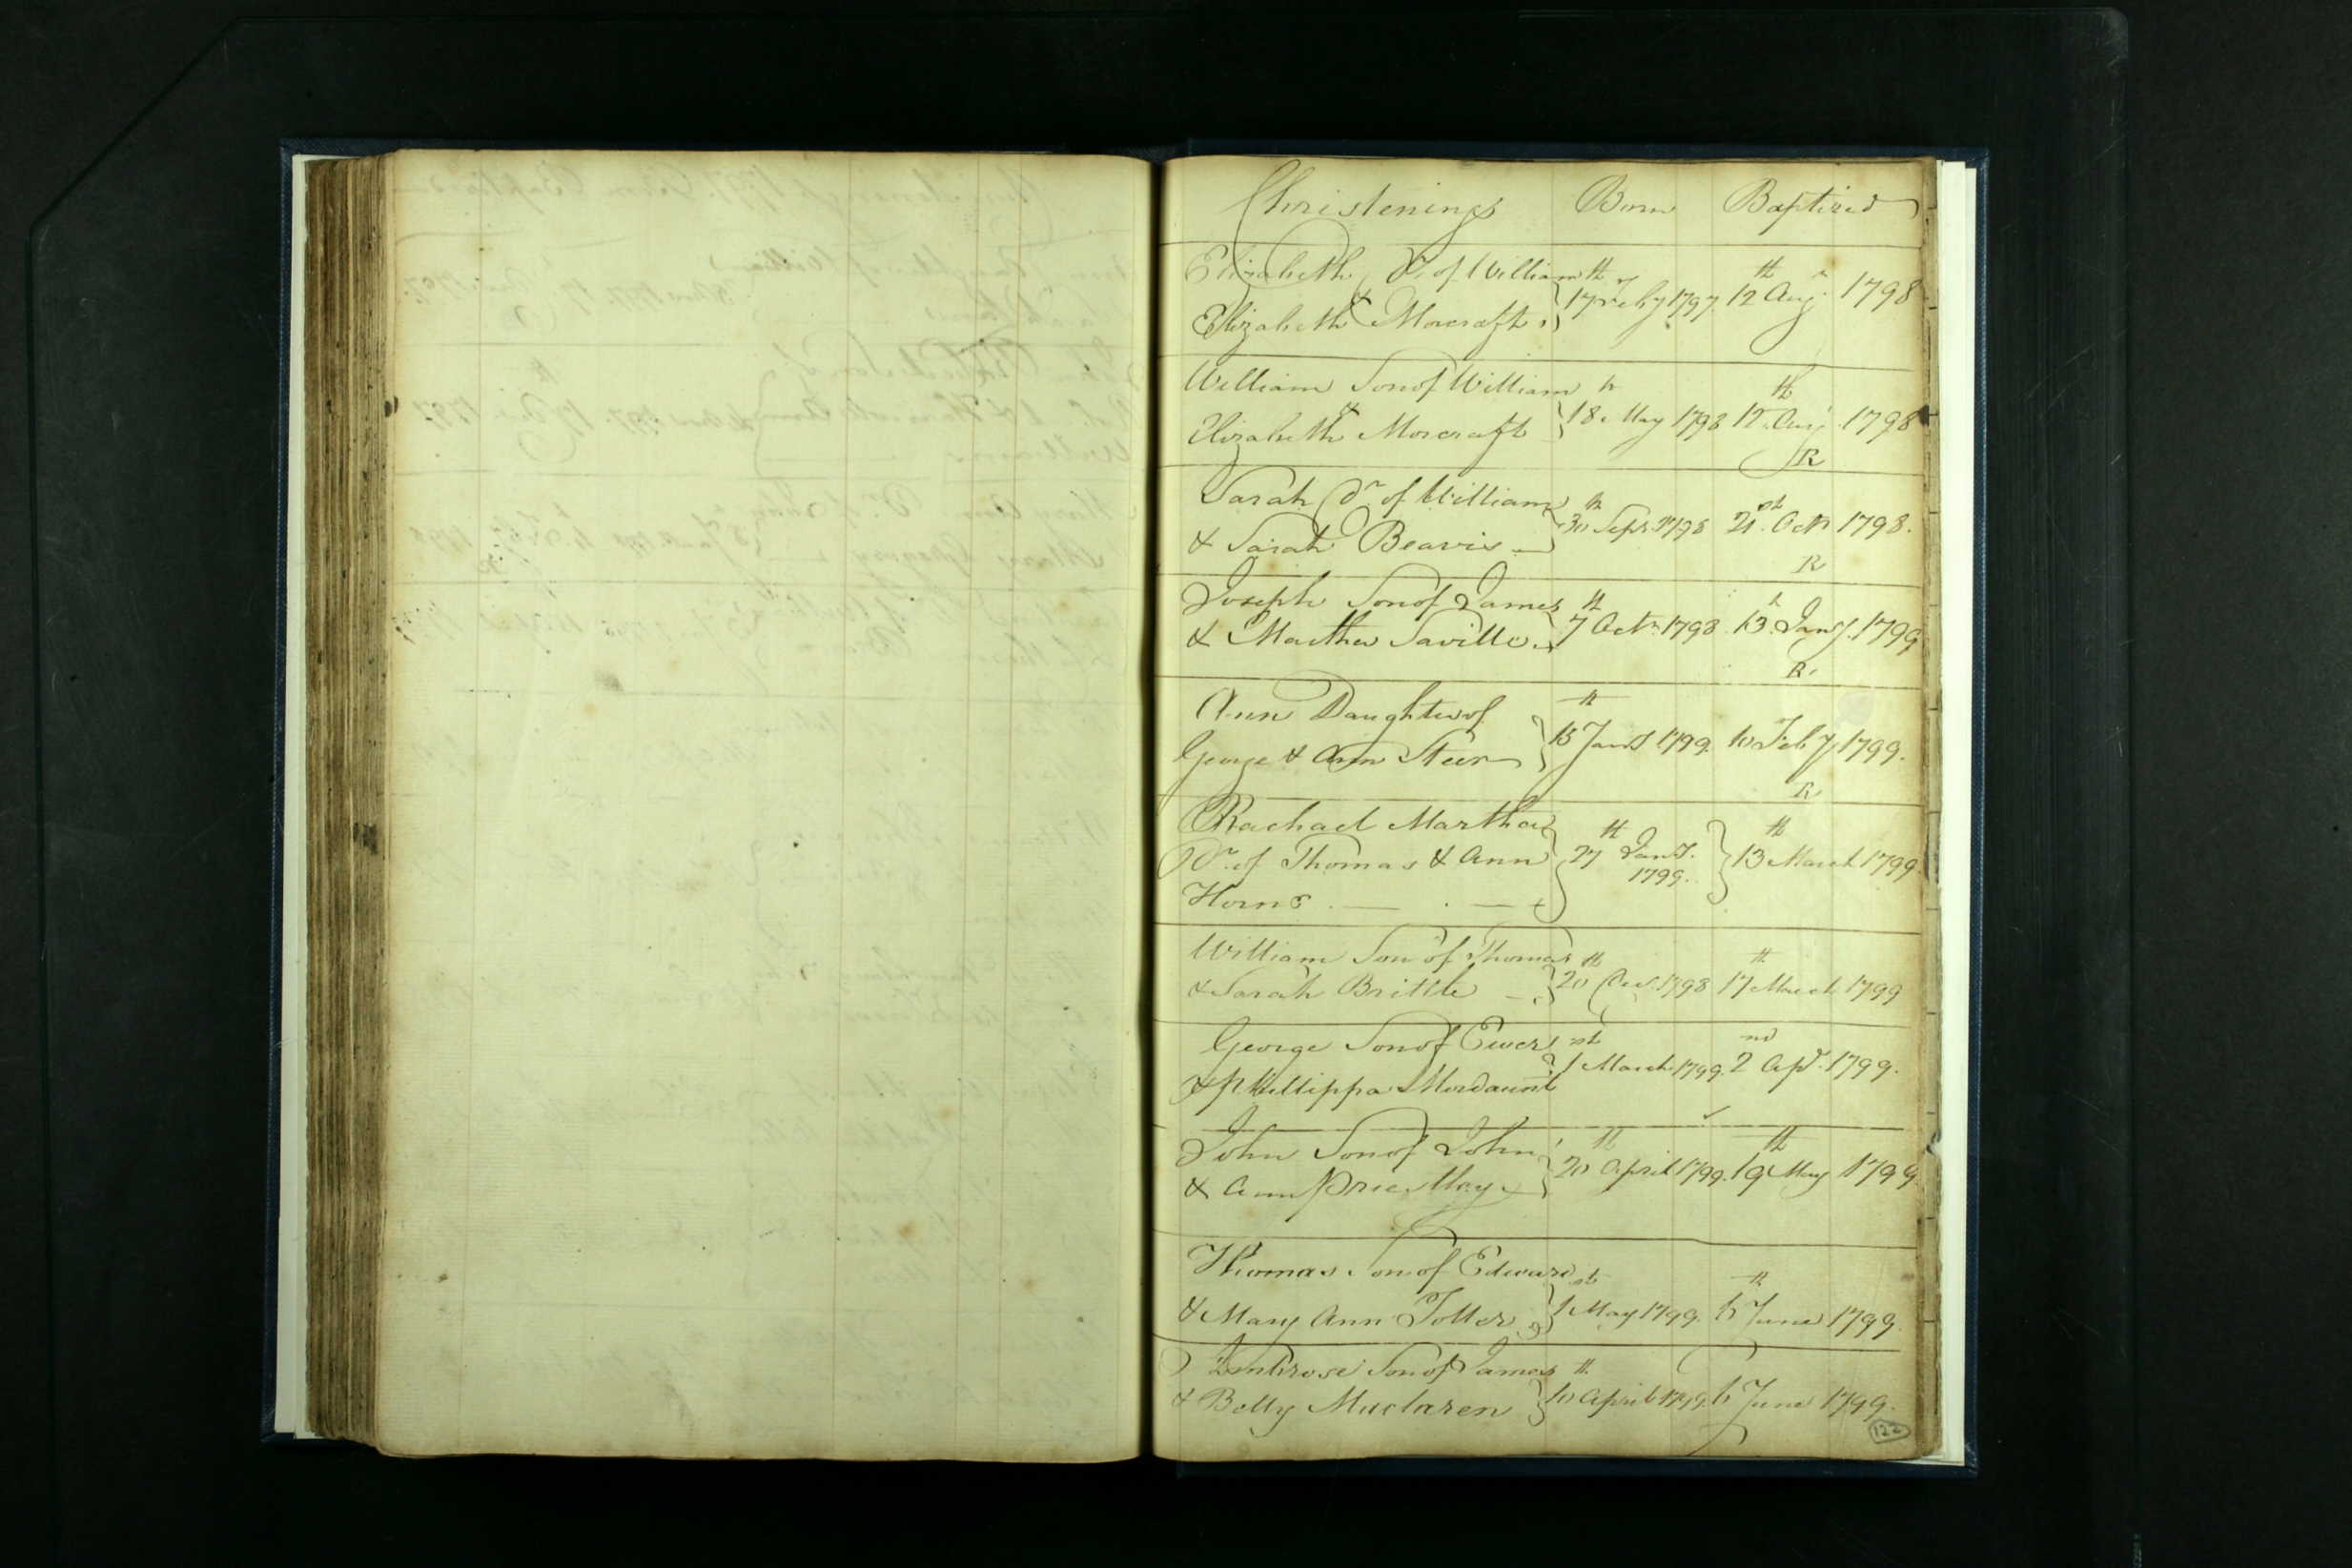 Christenings Born Baptized
Elizabeth Dr. of William
& Elizabeth Morcraft 17th Feby 1797. 12th Augt 1798
William Son of William
& Elizabeth Morcraft 18th May 1798 12th Augt 1798
R
Sarah Dr of William
& Sarah Beavis 30th Sepr. 1798 21st Octr 1798.
R
Joseph Son of James
& Martha Saville 7th Octr. 1798 13th Jany. 1799
R.
Ann Daughter of
George & Ann Steer 15th Jany 1799. 10 Feby 1799.
R
Rachael Martha
Dr. of Thomas & Ann 27th Jany. 13th March 1799
Horne 1799.
William Son of Thomas
& Sarah Brittle 20th Decr. 1798 17th March 1799
George Son of Ewer
& Phillippa Mordaunt 1st March 1799. 2nd Apl. 1799.
John Son of John
& Ann Price May 20th April 1799. 19th May 1799.
Thomas Son of Edward
& Mary Ann Toller 1st May 1799. 6th June 1799.
Ambrose Son of James
& Betty Maclaren 10th April 1799. 6 June 1799.
122